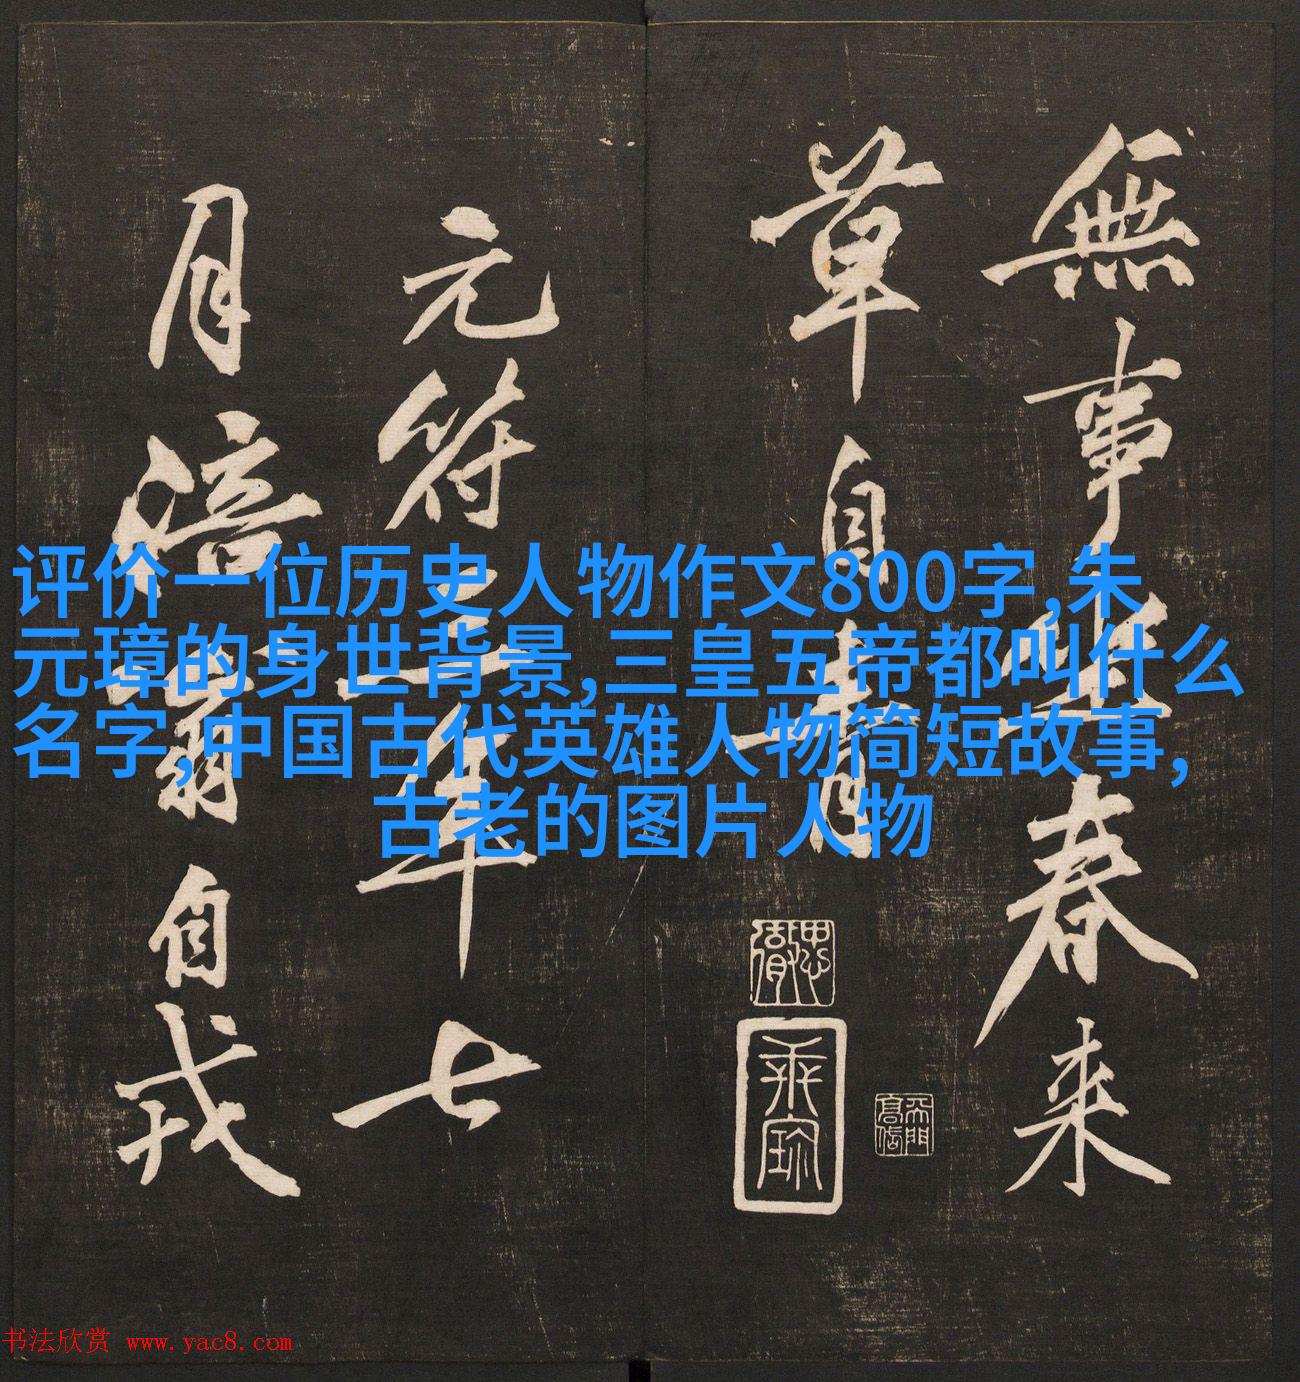 評价一位历史人物作文800字,朱
元璋的身世背景,三皇五帝都叫什么
名字,中国古代英雄人物简短故事,
古老的图片人物
無事坐春来
草自青
元符三年七
月涪翁自戎
书法欣赏 www.yac8.com